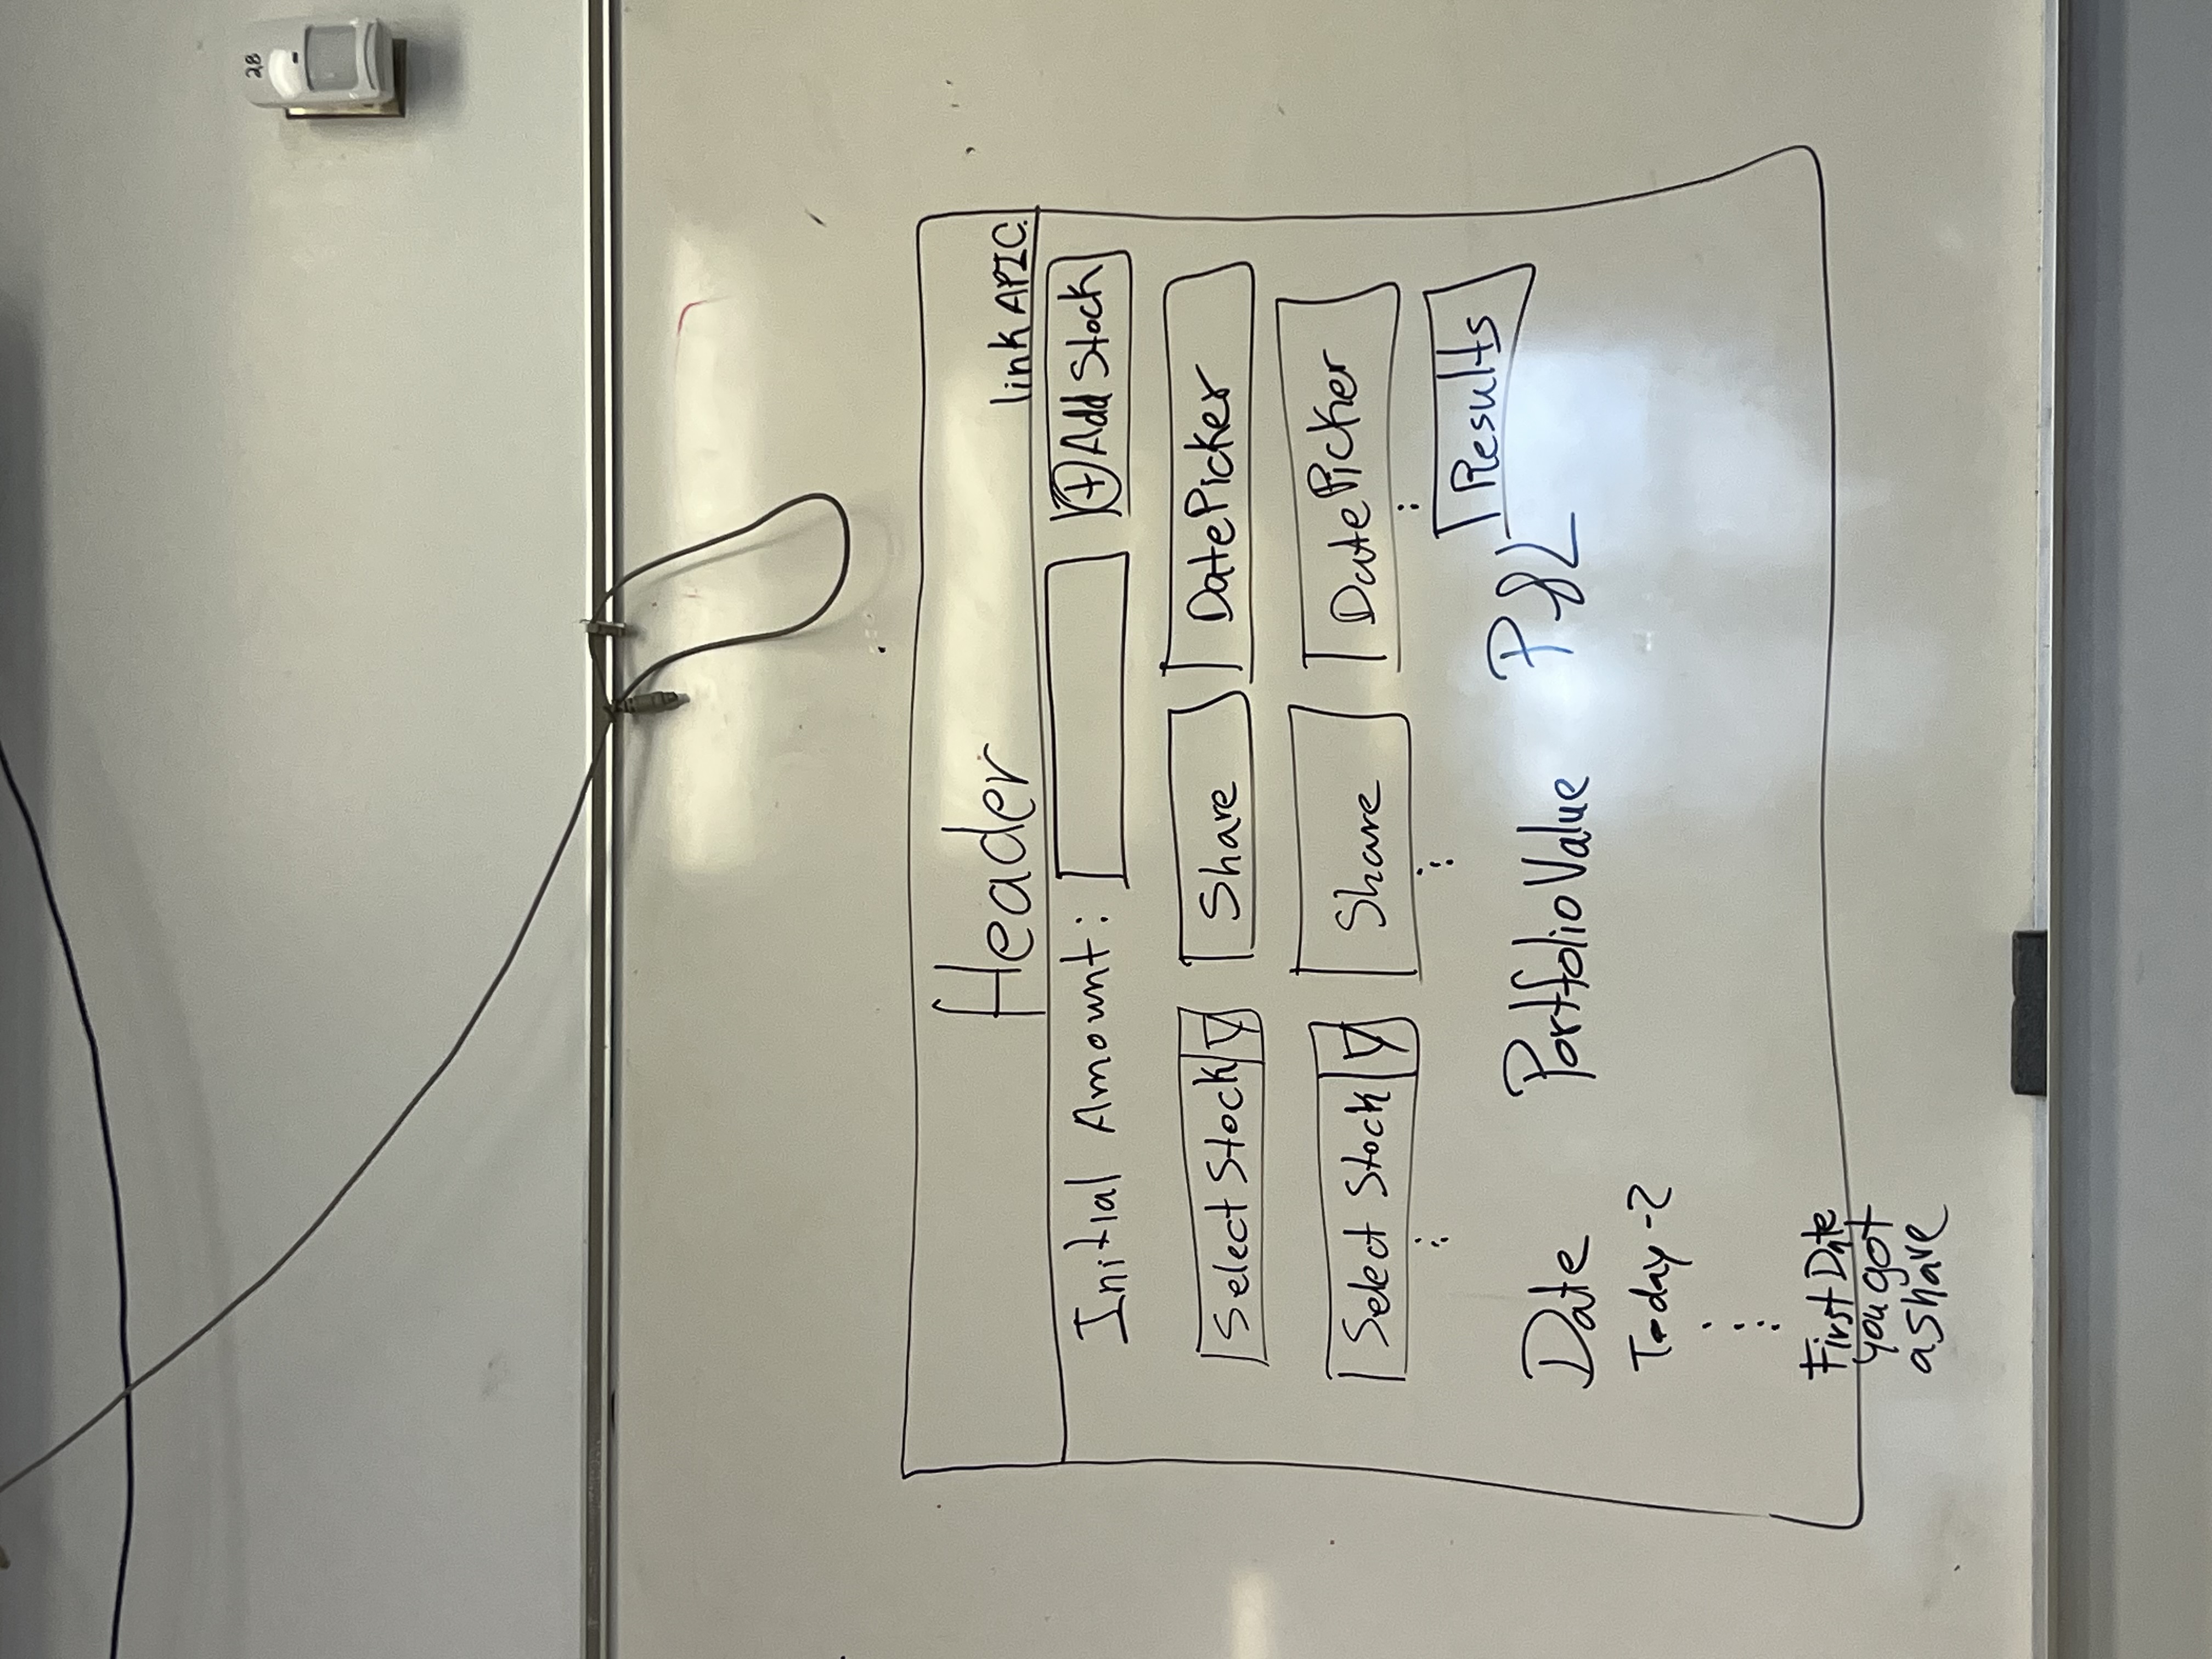 28
Header
link APIC.
Initial Amount:
+ Add Stock
Select Stock Share DatePicker
Select Stock Share DatePicker
Results
Date Portfolio Value P&L
Today -2
First Date
you got
a share